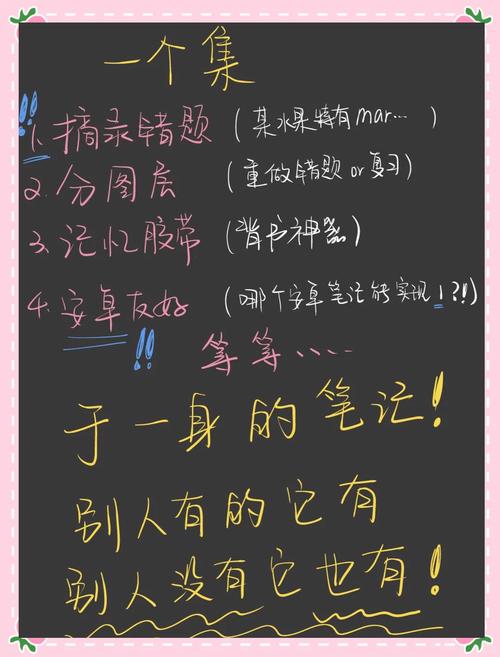 一个集
1.摘录错题（某水果特有mar...）
2.分图层（重做错题or复习）
3.记忆胶带（背书神器）
4.安卓友好（哪个安卓笔记能实现1?!）
等等....
于一身的笔记!
别人有的它有
别人没有它也有!